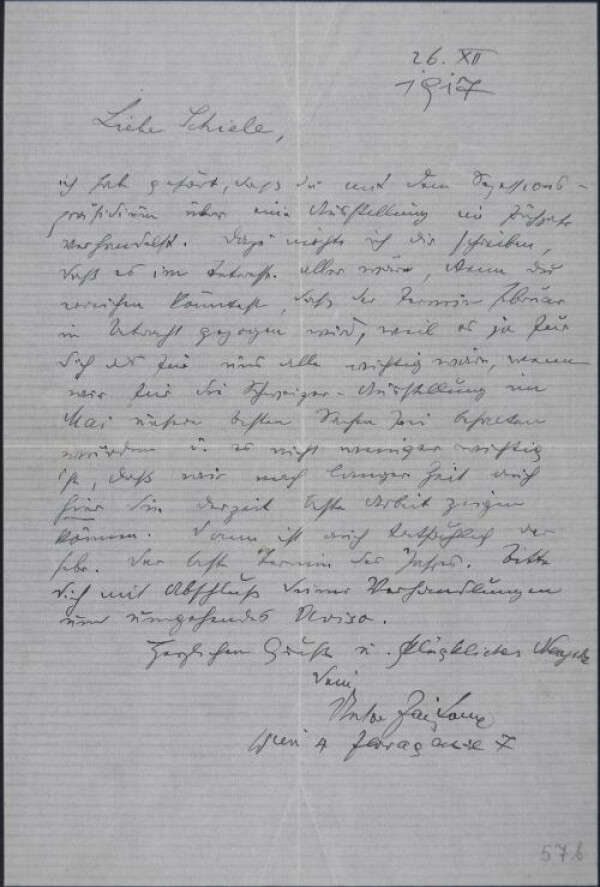 26. XII
1917
Lieber Schiele,
ich hab gehört, daß du mit dem Sezessions-
präsidium über eine Ausstellung im
verhandelst. Dazu möchte ich dir schreiben,
daß es im Interesse aller wäre, wenn du
erreichen könntest, daß der Termin Februar
in Betracht gezogen wird, weil es ja für
dich als für uns alle wichtig wäre, wenn
wir für die Schweizer-Ausstellung im
Mai unsere besten Sachen frei behalten
würden u. es nicht weniger wichtig
ist, daß wir nach langer Zeit auch
hier die derzeit beste Arbeit zeigen
können. Dann ist auch tatsächlich der
Febr. der beste Termin des Jahres. Bitte
dich mit Abschluß deiner Verhandlungen
um umgehendes Aviso.
Herzlichen Gruß u. glückliches Neujahr
Dein
Anton
Wien 4 Floragasse 7
576